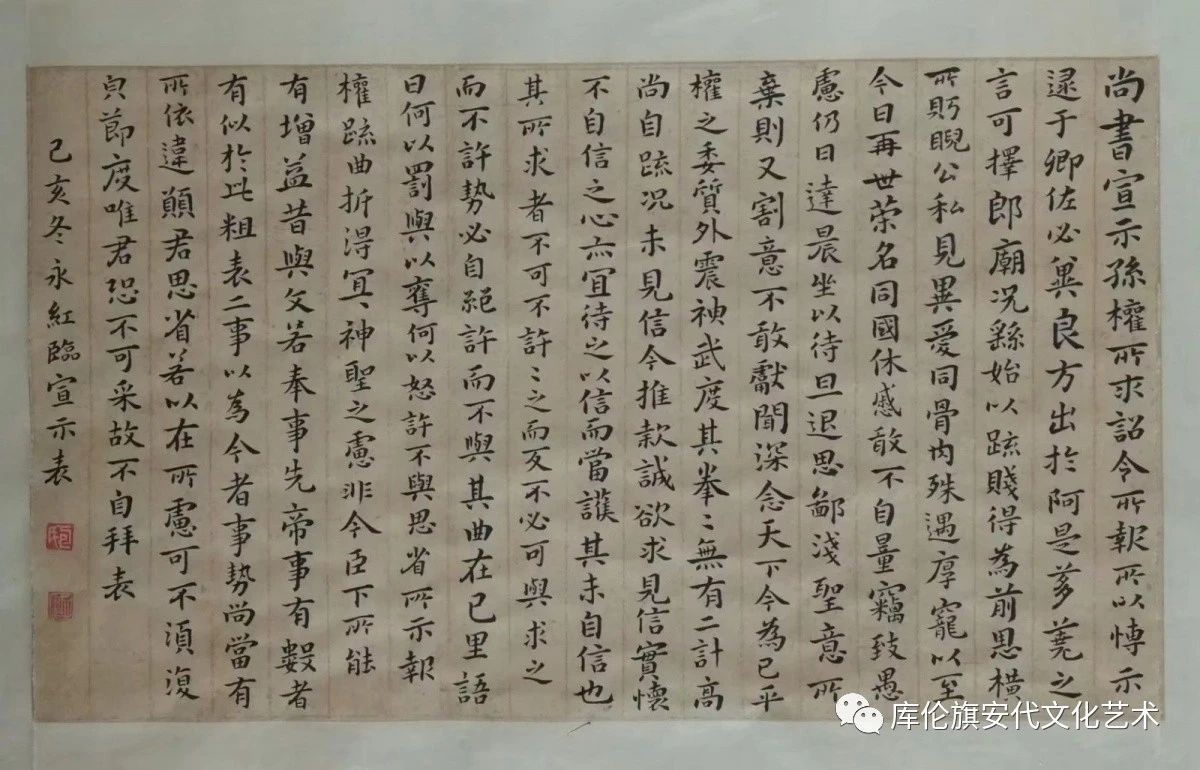 尚書宣示孫權所求詔令所報所以博示
逮于卿佐必冀良方出於阿是芻蕘之
言可擇郎廟況繇始以疏賤得為前思橫
所眄睨公私見異愛同骨肉殊遇厚寵以至
今日再世荣名同國休慼敢不自量竊致愚
慮仍日達晨坐以待旦退思鄙淺聖意所
棄則又割意不敢獻聞深念天下今為已平
權之委質外震神武度其拳〻無有二計高
尚自疏況未見信今推款誠欲求見信實懷
不自信之心亦宜待之以信而當護其未自信也
其所求者不可不許〻之而反不必可與求之
而不許勢必自絕許而不與其曲在已里語
曰何以罰與以奪何以怒許不與思省所示報
權疏曲折得宜〻神聖之慮非今臣下所能
有增益昔與文若奉事先帝事有數者
有似於此粗表二事以為今者事勢尚當有
所依違願君思省若以在所慮可不須復
貞節度唯君恐不可采故不自拜表
己亥冬永紅臨宣示表
库伦旗安代文化艺术